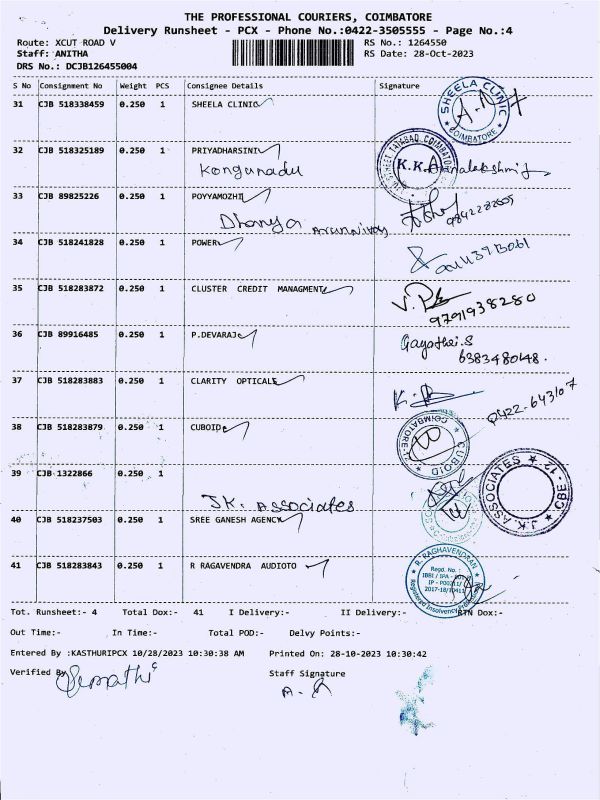 THE PROFESSIONAL COURIERS, COIMBATORE
Delivery Runsheet - PCX - Phone No.:0422-3505555 - Page No.:4
Route: XCUT ROAD V RS No.: 1264550
Staff: ANITHA RS Date: 28-Oct-2023
DRS No.: DCJB126455004
S No Consignment No Weight PCS Consignee Details Signature
31 CJB 518338459 0.250 1 SHEELA CLINIC
SHEELA CLINIC COIMBATORE
32 CJB 518325189 0.250 1 PRIYADHARSINI
Kongunadu
33 CJB 89825226 0.250 1 POYYAMOZHI
Dhanya
34 CJB 518241828 0.250 1 POWER
35 CJB 518283872 0.250 1 CLUSTER CREDIT MANAGMENT
9791938280
36 CJB 89916485 0.250 1 P.DEVARAJ
Gayathri.S
6383480148.
37 CJB 518283883 0.250 1 CLARITY OPTICALS
0422-643107
38 CJB 518283879 0.250 1 CUBOID
COIMBATORE CUBOID
39 CJB 1322866 0.250 1
JK. Associates
J.K. ASSOCIATES CBE - 12
40 CJB 518237503 0.250 1 SREE GANESH AGENCY
41 CJB 518283843 0.250 1 R RAGAVENDRA AUDIOTO
R. RAGHAVENDRAN
Regd. No. :
IBBI / IPA -
2017-18/10411
Registered Insolvency
Tot. Runsheet:- 4 Total Dox:- 41 I Delivery:- II Delivery:- RTN Dox:-
Out Time:- In Time:- Total POD:- Delvy Points:-
Entered By :KASTHURIPCX 10/28/2023 10:30:38 AM Printed On: 28-10-2023 10:30:42
Verified By Staff Signature